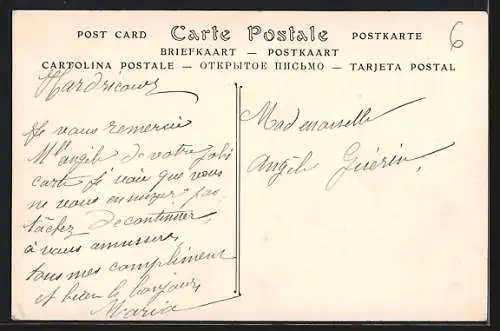 POST CARD Carte Postale POSTKARTE
BRIEFKAART — POSTKAART
CARTOLINA POSTALE — ОТКРЫТОЕ ПИСЬМО — TARJETA POSTAL
6
Hardricourt
Je vous remercie
Mlle angèle de votre joli
carte je voie que vous
ne vous ennuyez pas
tâchez de continuer
à vous amusser,
tous mes compliment
et bien le bonjour,
Maria
Mademoiselle
Angèle Guérin,